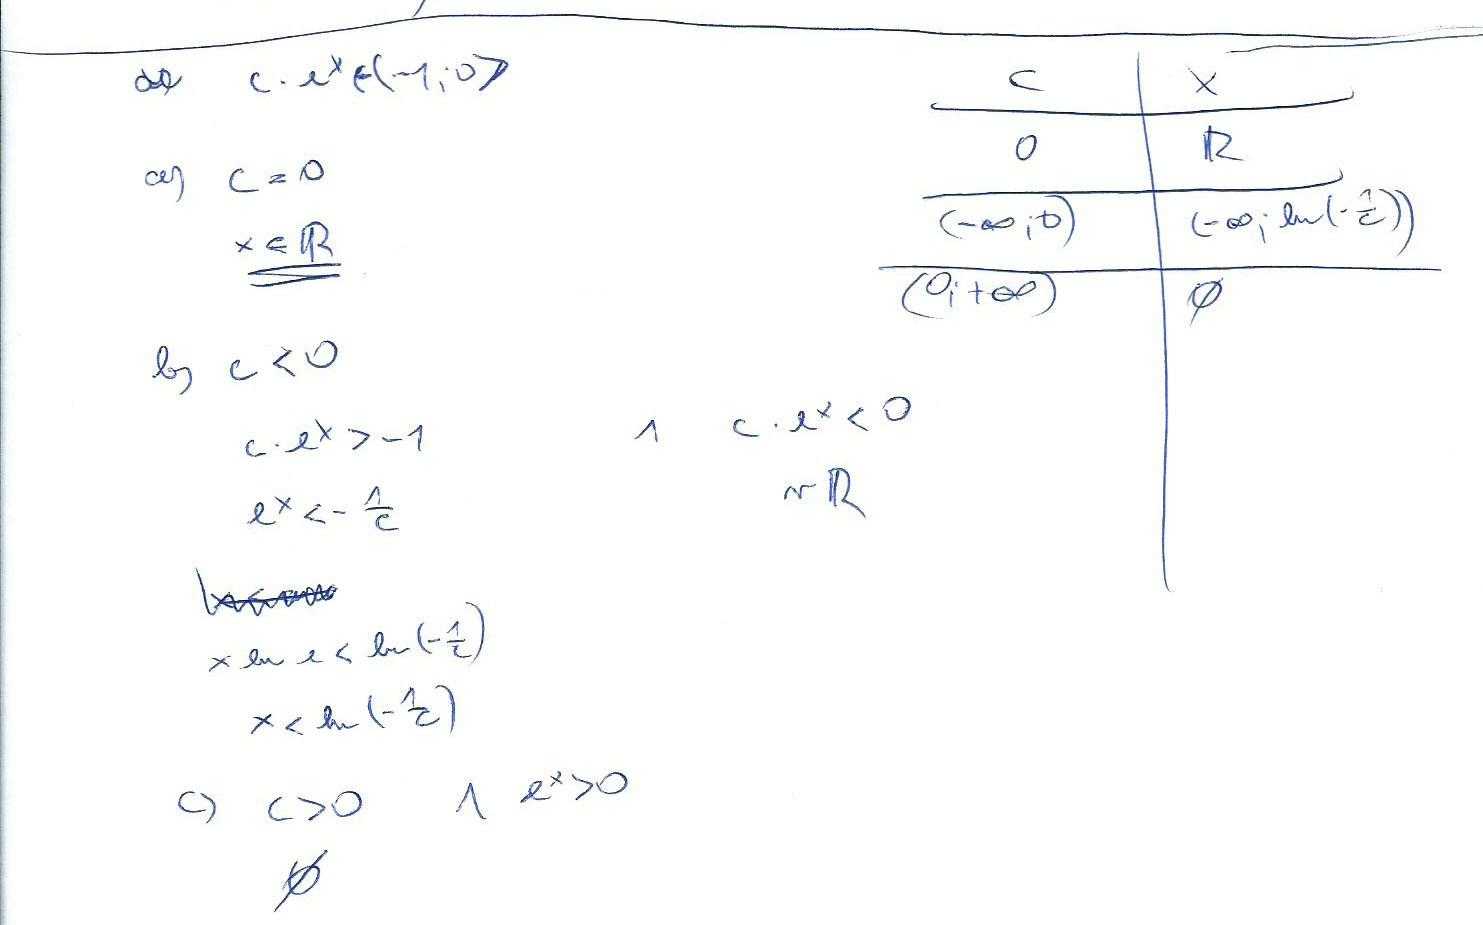 c · e^x ∈ (-1; 0>
a) c = 0
x ∈ ℝ
b) c < 0
c · e^x > -1 ∧ c · e^x < 0
e^x < - 1/c
v ℝ
x ln e < ln(- 1/c)
x < ln(- 1/c)
c) c > 0 ∧ e^x > 0
∅
c x
0 ℝ
(-∞; 0) (-∞; ln(- 1/c))
(0; +∞) ∅